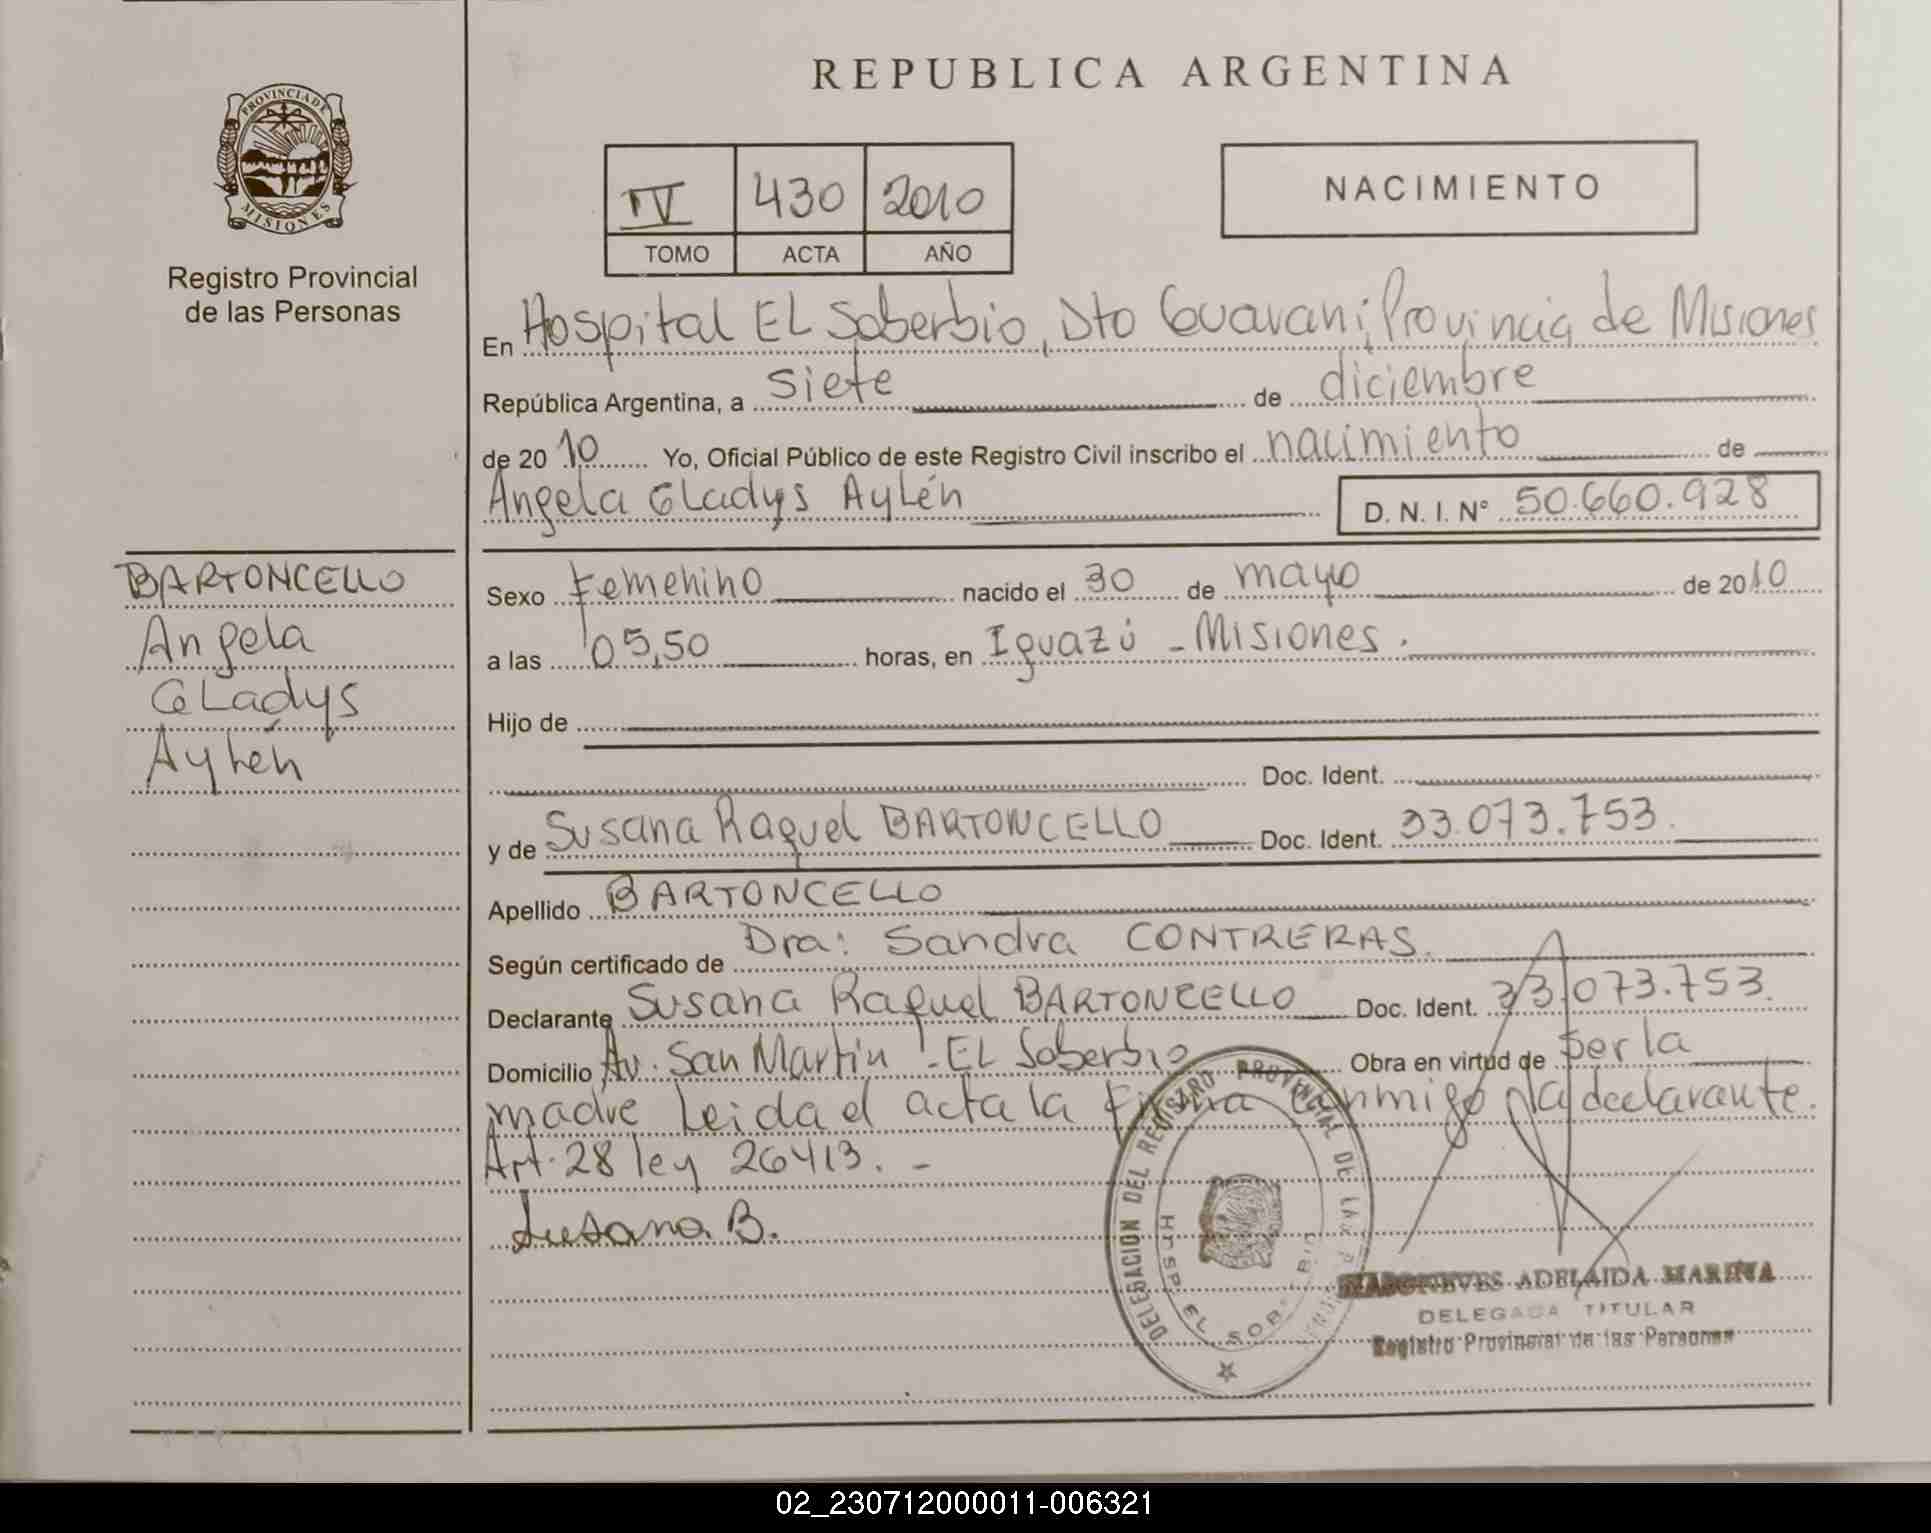 REPUBLICA ARGENTINA
PROVINCIA DE
MISIONES
Registro Provincial
de las Personas
IV 430 2010
TOMO ACTA AÑO
NACIMIENTO
En Hospital EL Soberbio, Dto Guarani; Provincia de Misiones
República Argentina, a siete de diciembre
de 2010 Yo, Oficial Público de este Registro Civil inscribo el nacimiento de
Angela GLadys Aylén D. N. I. Nº 50.660.928
BARTONCELLO
Angela
GLadys
Aylén
Sexo Femenino nacido el 30 de mayo de 2010
a las 05,50 horas, en Iguazú - Misiones.
Hijo de
Doc. Ident.
y de Susana Raquel BARTONCELLO Doc. Ident. 33.073.753.
Apellido BARTONCELLO
Según certificado de Dra: Sandra CONTRERAS.
Declarante Susana Raquel BARTONCELLO Doc. Ident. 33.073.753.
Domicilio Av. San Martin - EL Soberbio Obra en virtud de ser la
madre Leida el acta la firma conmigo la declarante.
Art. 28 ley 26413. -
Susana B.
DELEGACION DEL REGISTRO PROVINCIAL DE LAS
HOSP. EL SOB
ADELAIDA MARINA
DELEGADA TITULAR
Registro Provincial de las Personas
02_230712000011-006321